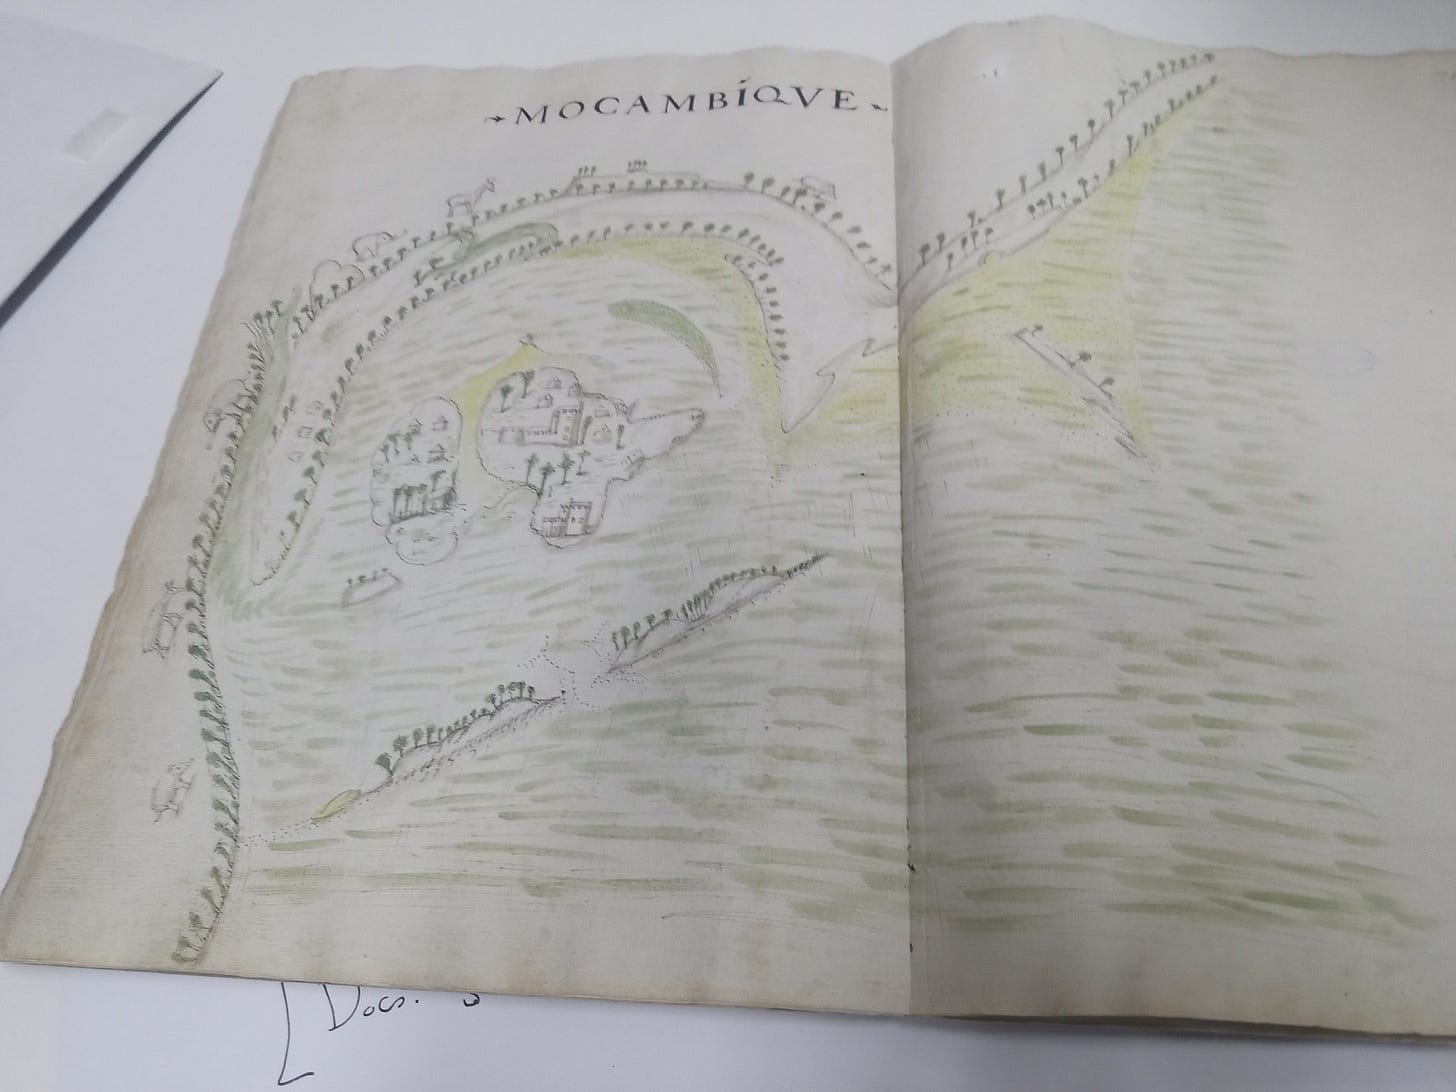 MOCAMBÍQVE
Docs.